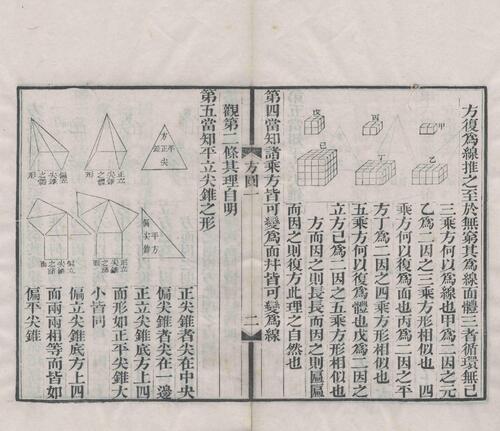 方復為線推之至於無窮其為線面體三者循環無已
甲
乙
丙
丁
戊
己
三乘方何以為線也甲為二因之元
乙為二因之三乘方形相似也 四
乘方何以為面也丙為二因之平
方丁為二因之四乘方形相似也
五乘方何以復為體也戊為二因之
立方己為二因之五乘方形相似也
方而因之則長長而因之則匾匾
而因之則復方此理之自然也
第四當知諸乘方皆可變為面幷皆可變為線
方圓一
二
觀第二條其理自明
第五當知平立尖錐之形
正尖錐者尖在中央
偏尖錐者尖在一邊
正立尖錐底方上四
面形如正平尖錐大
小皆同
偏立尖錐底方上四
面兩兩相等而皆如
偏平尖錐